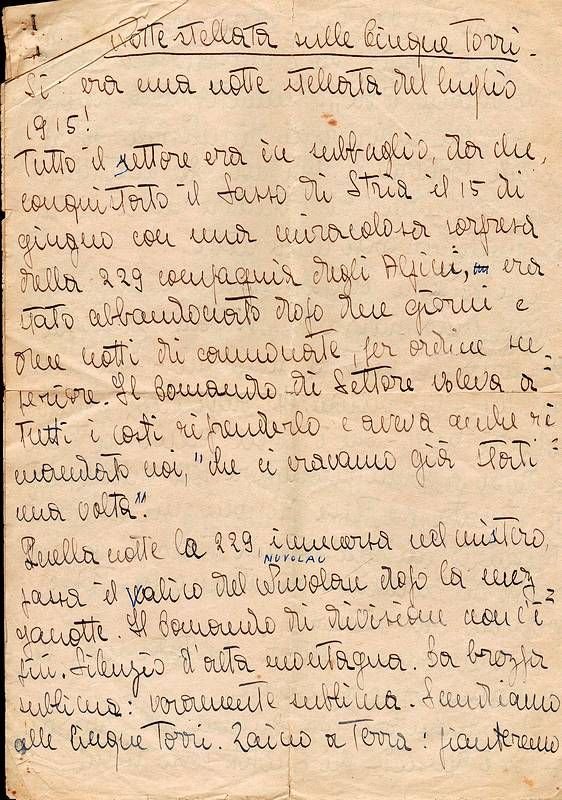 Notte stellata sulle Cinque Torri.
Si era una notte stellata del luglio
1915!
Tutto il settore era in subbuglio, da che,
conquistato il Sasso di Stria il 15 di
giugno con una miracolosa sorpresa
della 229 compagnia degli Alpini, era
stato abbandonato dopo due giorni e
due notti di cannonate, per ordine su-
periore. Il Comando di Settore voleva a
tutti i costi riprenderlo e aveva anche ri
mandato noi, "che ci eravamo già stati
una volta".
Quella notte la 229, immersa nel mistero,
NUVOLAU
passa il valico del Nuvolau dopo la mez-
zanotte. Il Comando di divisione non c'è
più. Silenzio d'alta montagna. La brezza
sublima: veramente sublima. Scendiamo
alle Cinque Torri. Zaino a terra: pianteremo